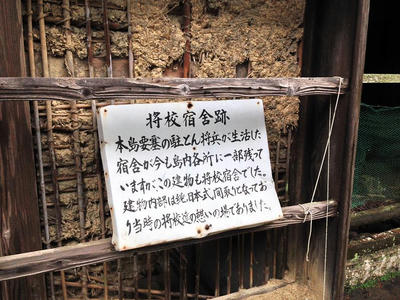 将校宿舍跡
本島要塞の駐とん将兵が生活した
宿舍が今も島内各所に一部残って
いますが、この建物も将校宿舍でした。
建物内部は純日本式間取りとなってお
り当時の将校達の想いの場でありました。